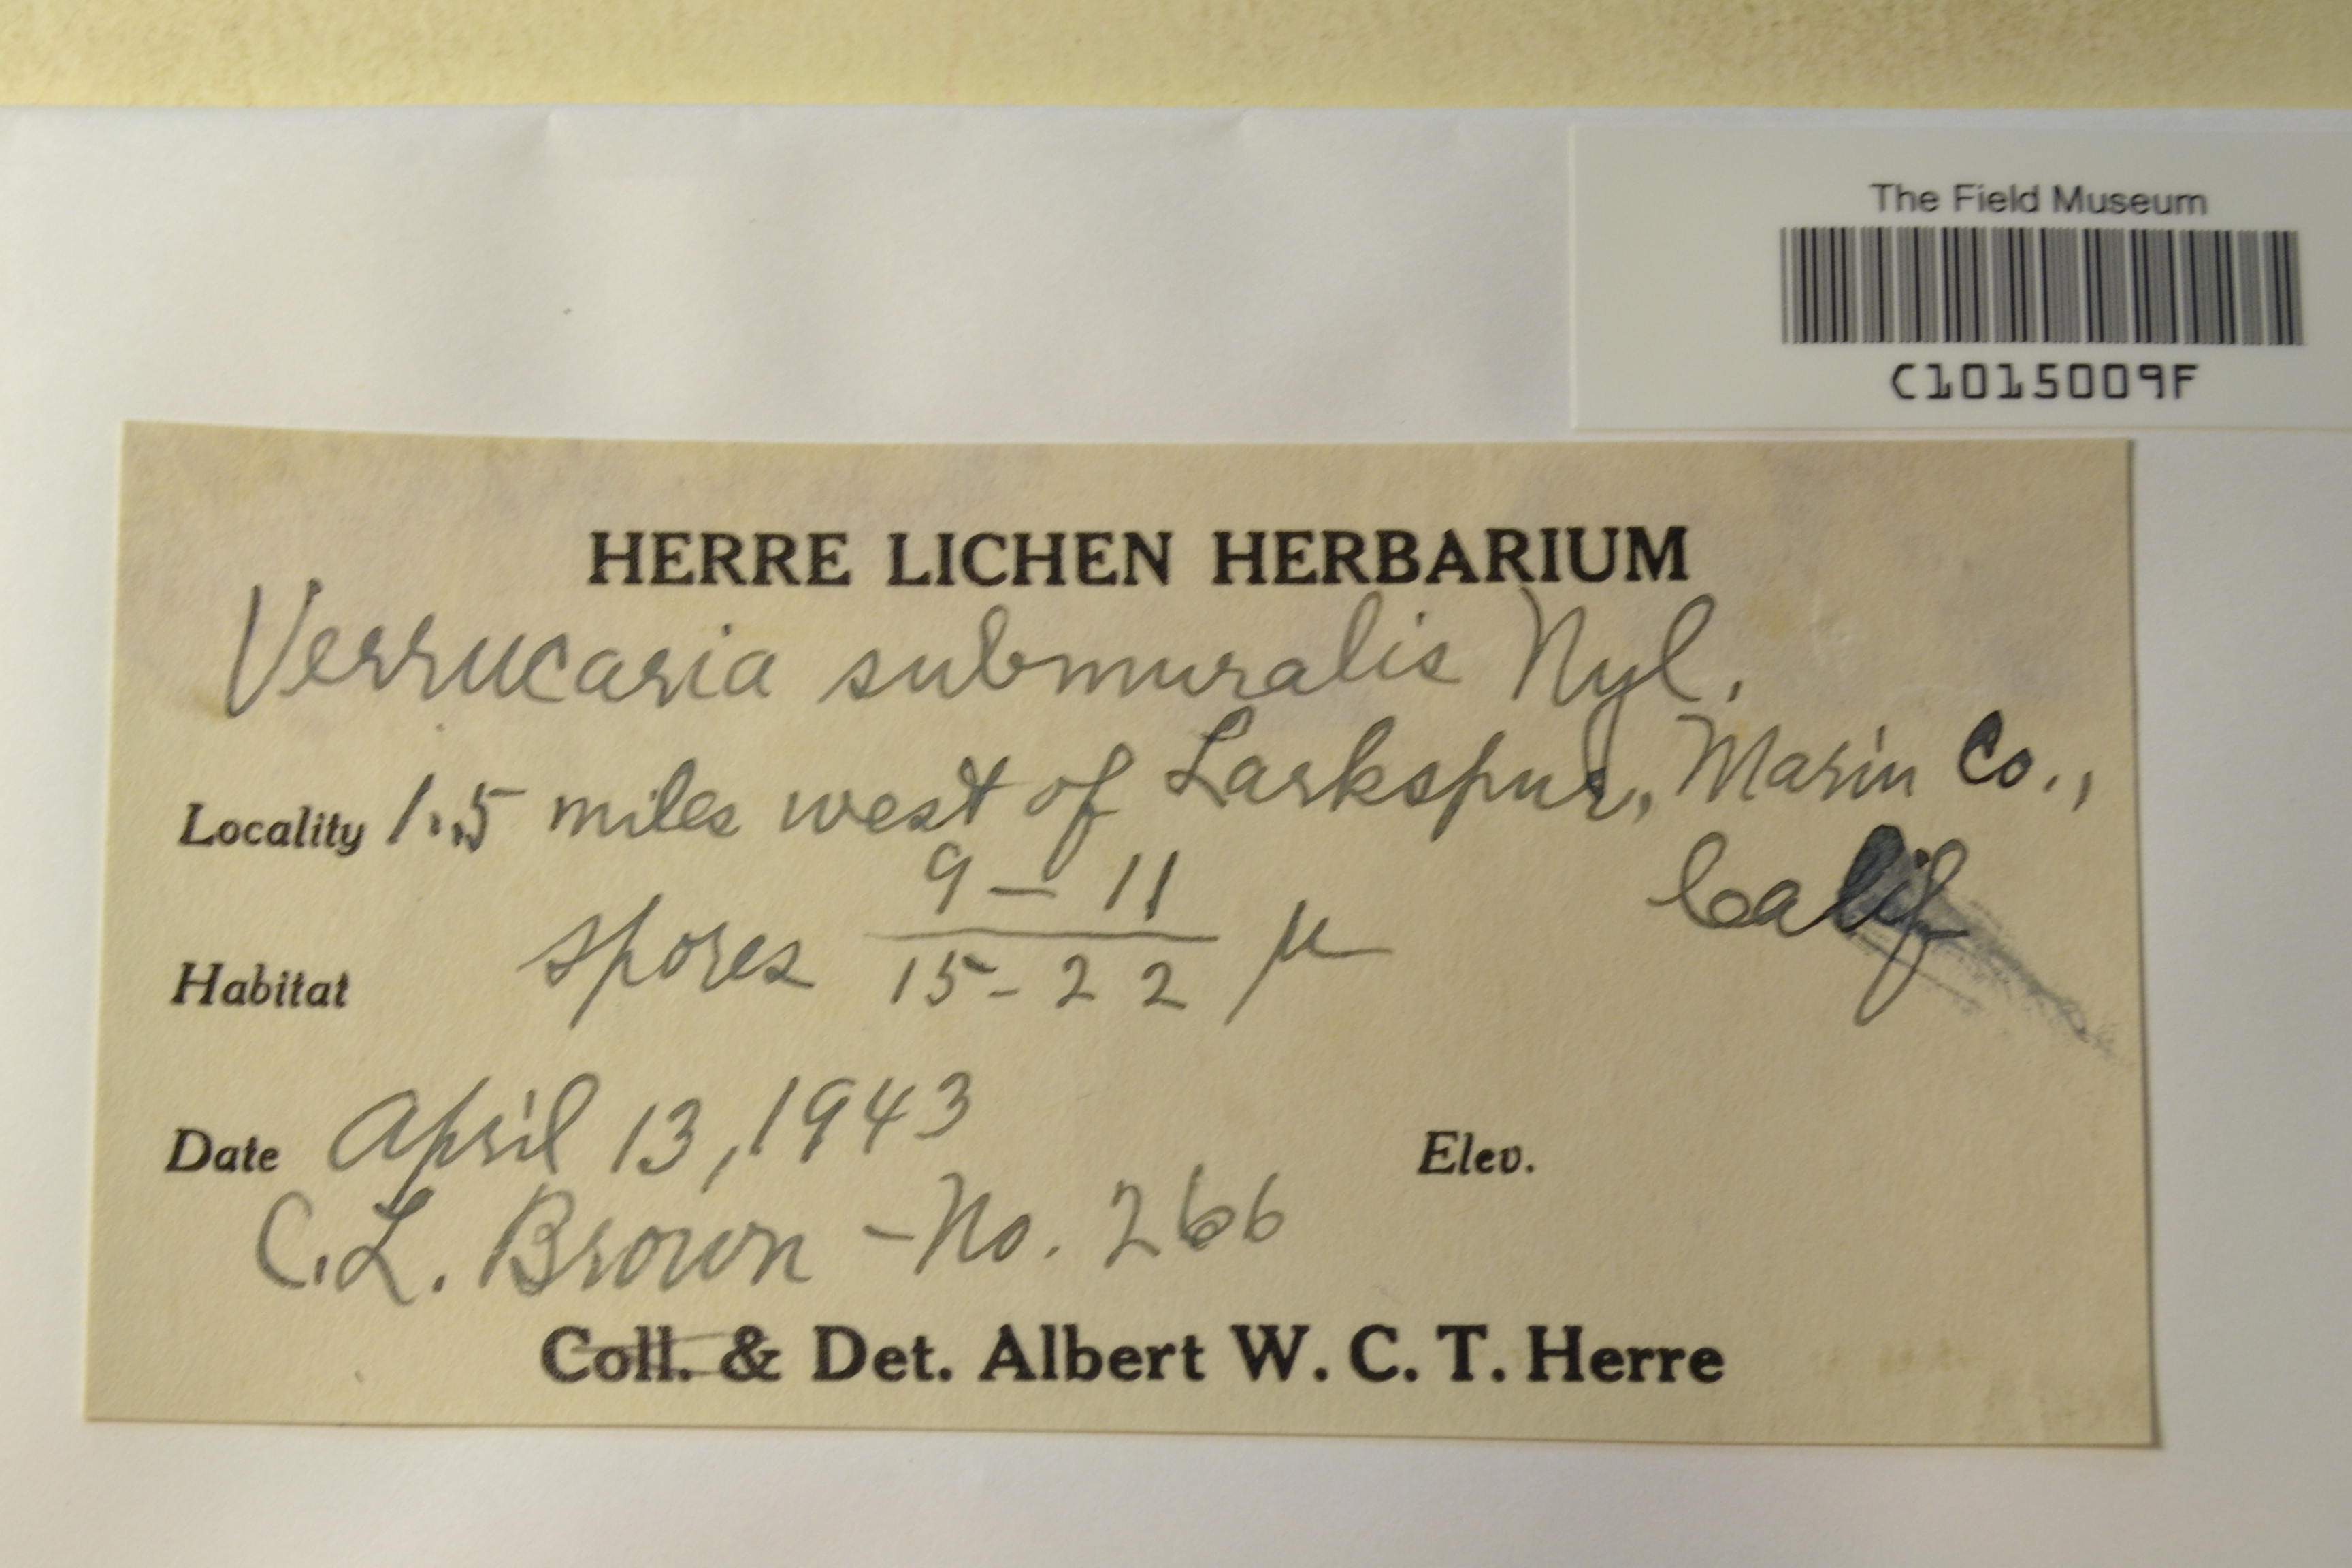 The Field Museum
C1015009F
HERRE LICHEN HERBARIUM
Verrucaria submuralis Nyl.
Locality 1.5 miles west of Larkspur, Marin Co.,
Calif
9 – 11
Habitat spores μ
15 - 22
Date April 13, 1943 Elev.
C. L. Brown – No. 266
Coll. & Det. Albert W. C. T. Herre